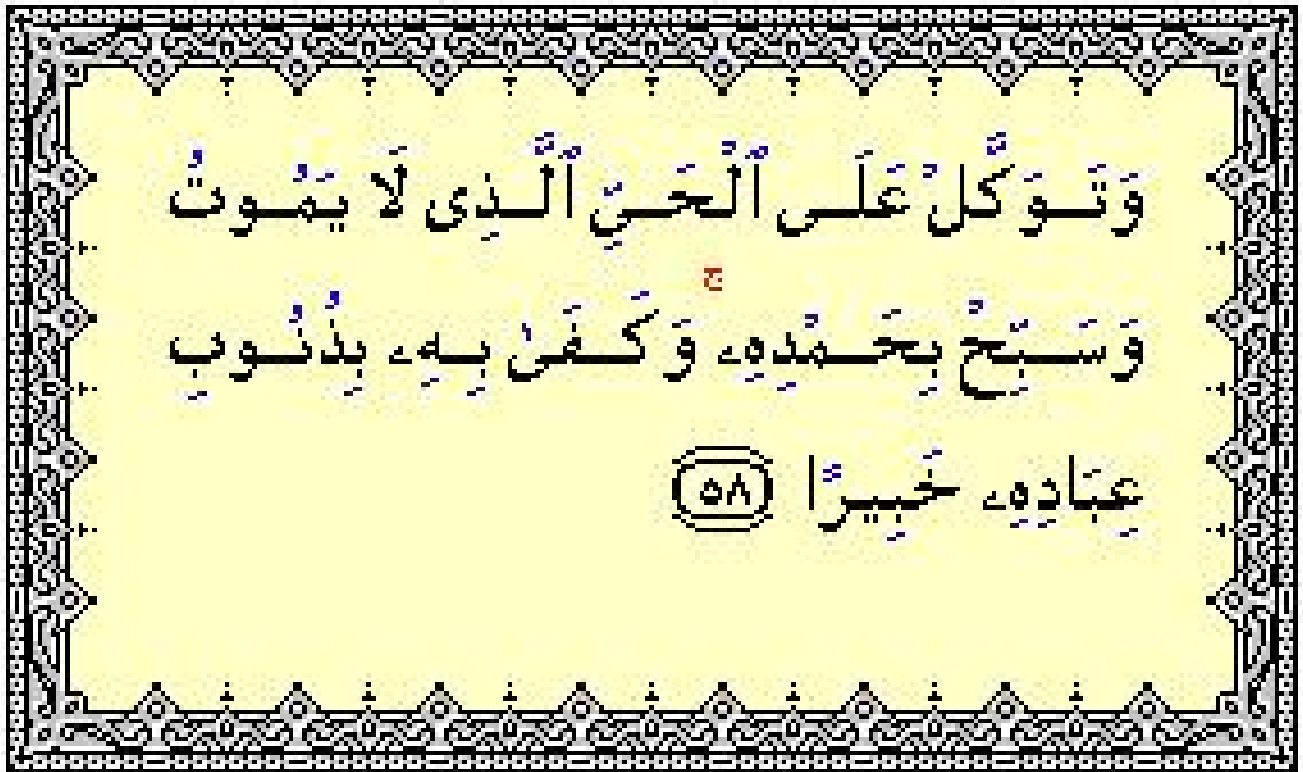 وَتَوَكَّلْ عَلَى ٱلْحَيِّ ٱلَّذِى لَا يَمُوتُ
وَسَبِّحْ بِحَمْدِهِۦ ۚ وَكَفَىٰ بِهِۦ بِذُنُوبِ
عِبَادِهِۦ خَبِيرًا ٥٨